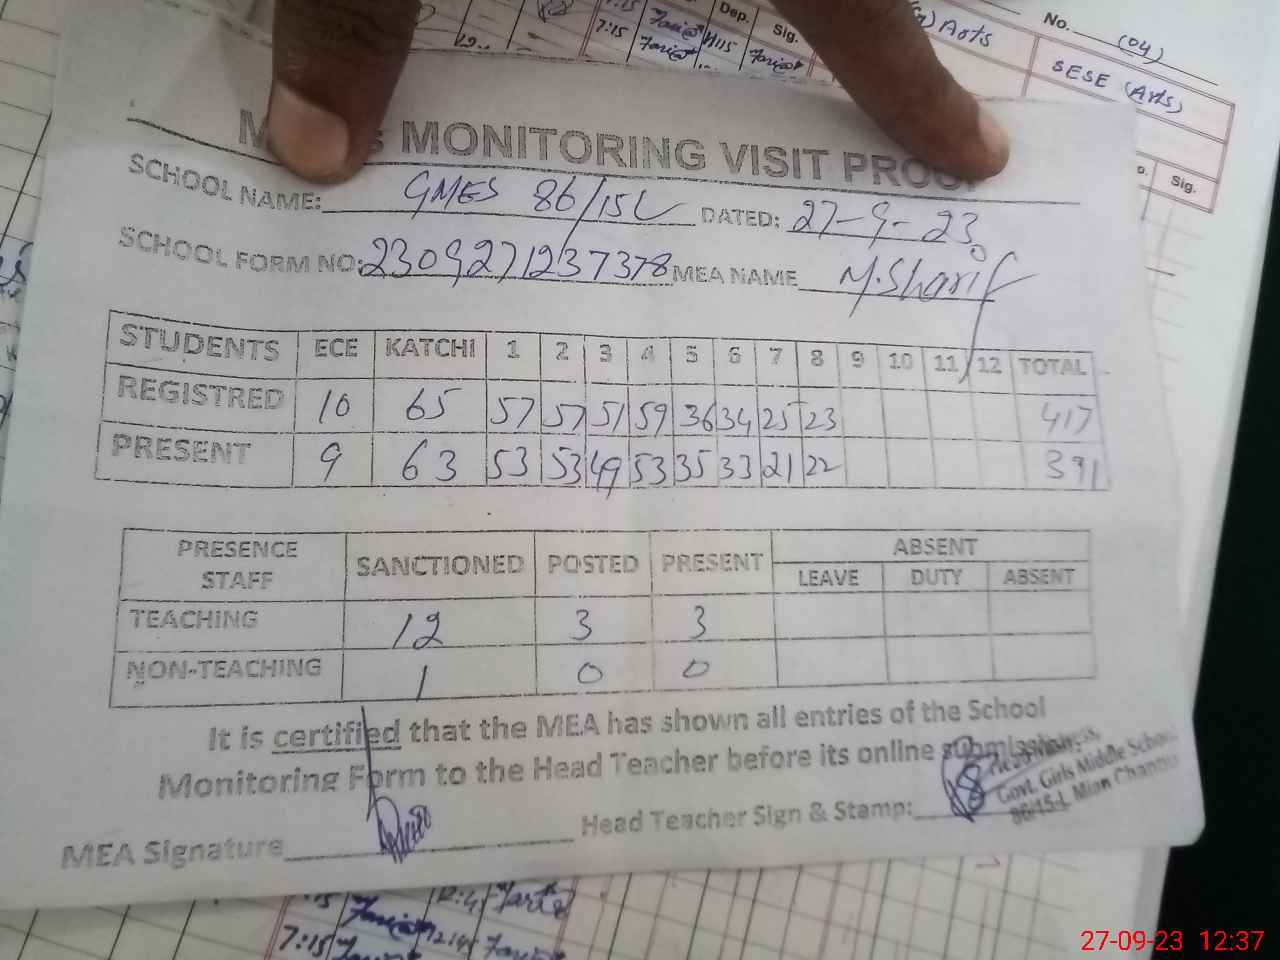 No. (04)
Dep. Sig. Arts
7:15 SESE (Arts)
Sig.
MONITORING VISIT PROOF
SCHOOL NAME: GMES 86/15L DATED: 27-9-23
SCHOOL FORM NO: 2309271237378 MEA NAME M.Sharif
STUDENTS ECE KATCHI 1 2 3 4 5 6 7 8 9 10 11 12 TOTAL
REGISTRED 10 65 57 57 51 59 36 34 25 23 417
PRESENT 9 63 53 53 49 53 35 33 21 22 391
PRESENCE STAFF SANCTIONED POSTED PRESENT ABSENT
LEAVE DUTY ABSENT
TEACHING 12 3 3
NON-TEACHING 1 0 0
It is certified that the MEA has shown all entries of the School
Monitoring Form to the Head Teacher before its online submission.
MEA Signature Head Teacher Sign & Stamp:
Headmistress,
Govt. Girls Middle School
86/15-L Mian Channu
7:15
27-09-23 12:37